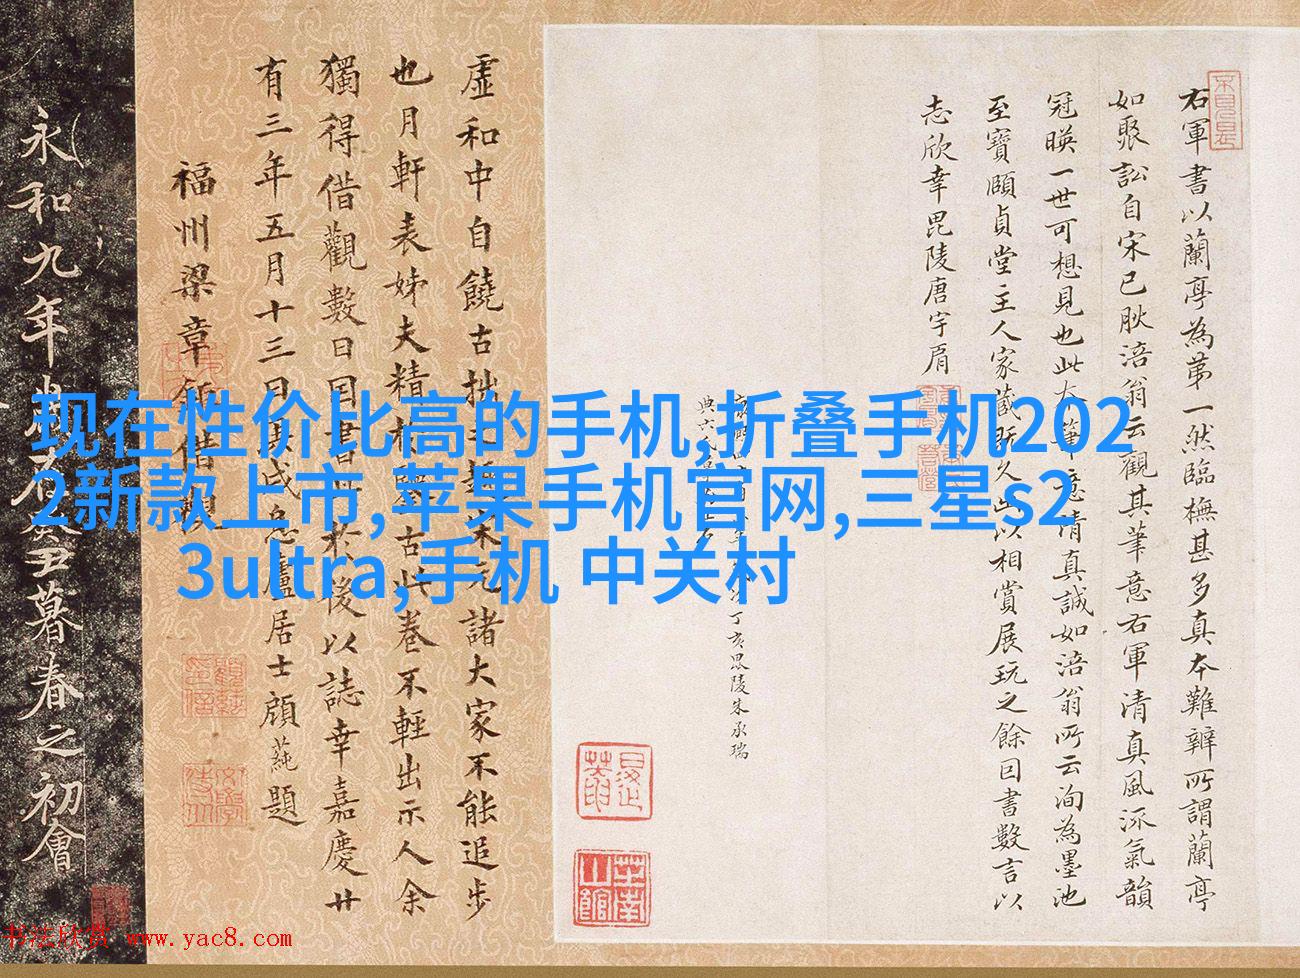 右軍書以蘭亭為苐一然臨橅甚多真本難辧所謂蘭亭
如聚訟自宋已肰涪翁云觀其筆意右軍清真風流氣韻
冠暎一世可想見也此本筆意清真誠如涪翁所云洵為墨池
至寶頤貞堂主人家藏既久出以相賞展玩之餘因書數言以
志欣幸毘陵唐宇肩
丁亥毘陵朱承瑞
虛和中自饒古拙
宋元諸大家不能追步
也月軒表姊夫精
古此卷不輕出示人余
獨得借觀數日因書
於後以誌幸嘉慶廿
有三年五月十三日
廬居士顧蒓題
福州梁章鉅借觀
永和九年
暮春之初會
现在性价比高的手机,折叠手机202
2新款上市,苹果手机官网,三星s2
3ultra,手机 中关村
书法欣赏 www.yac8.com